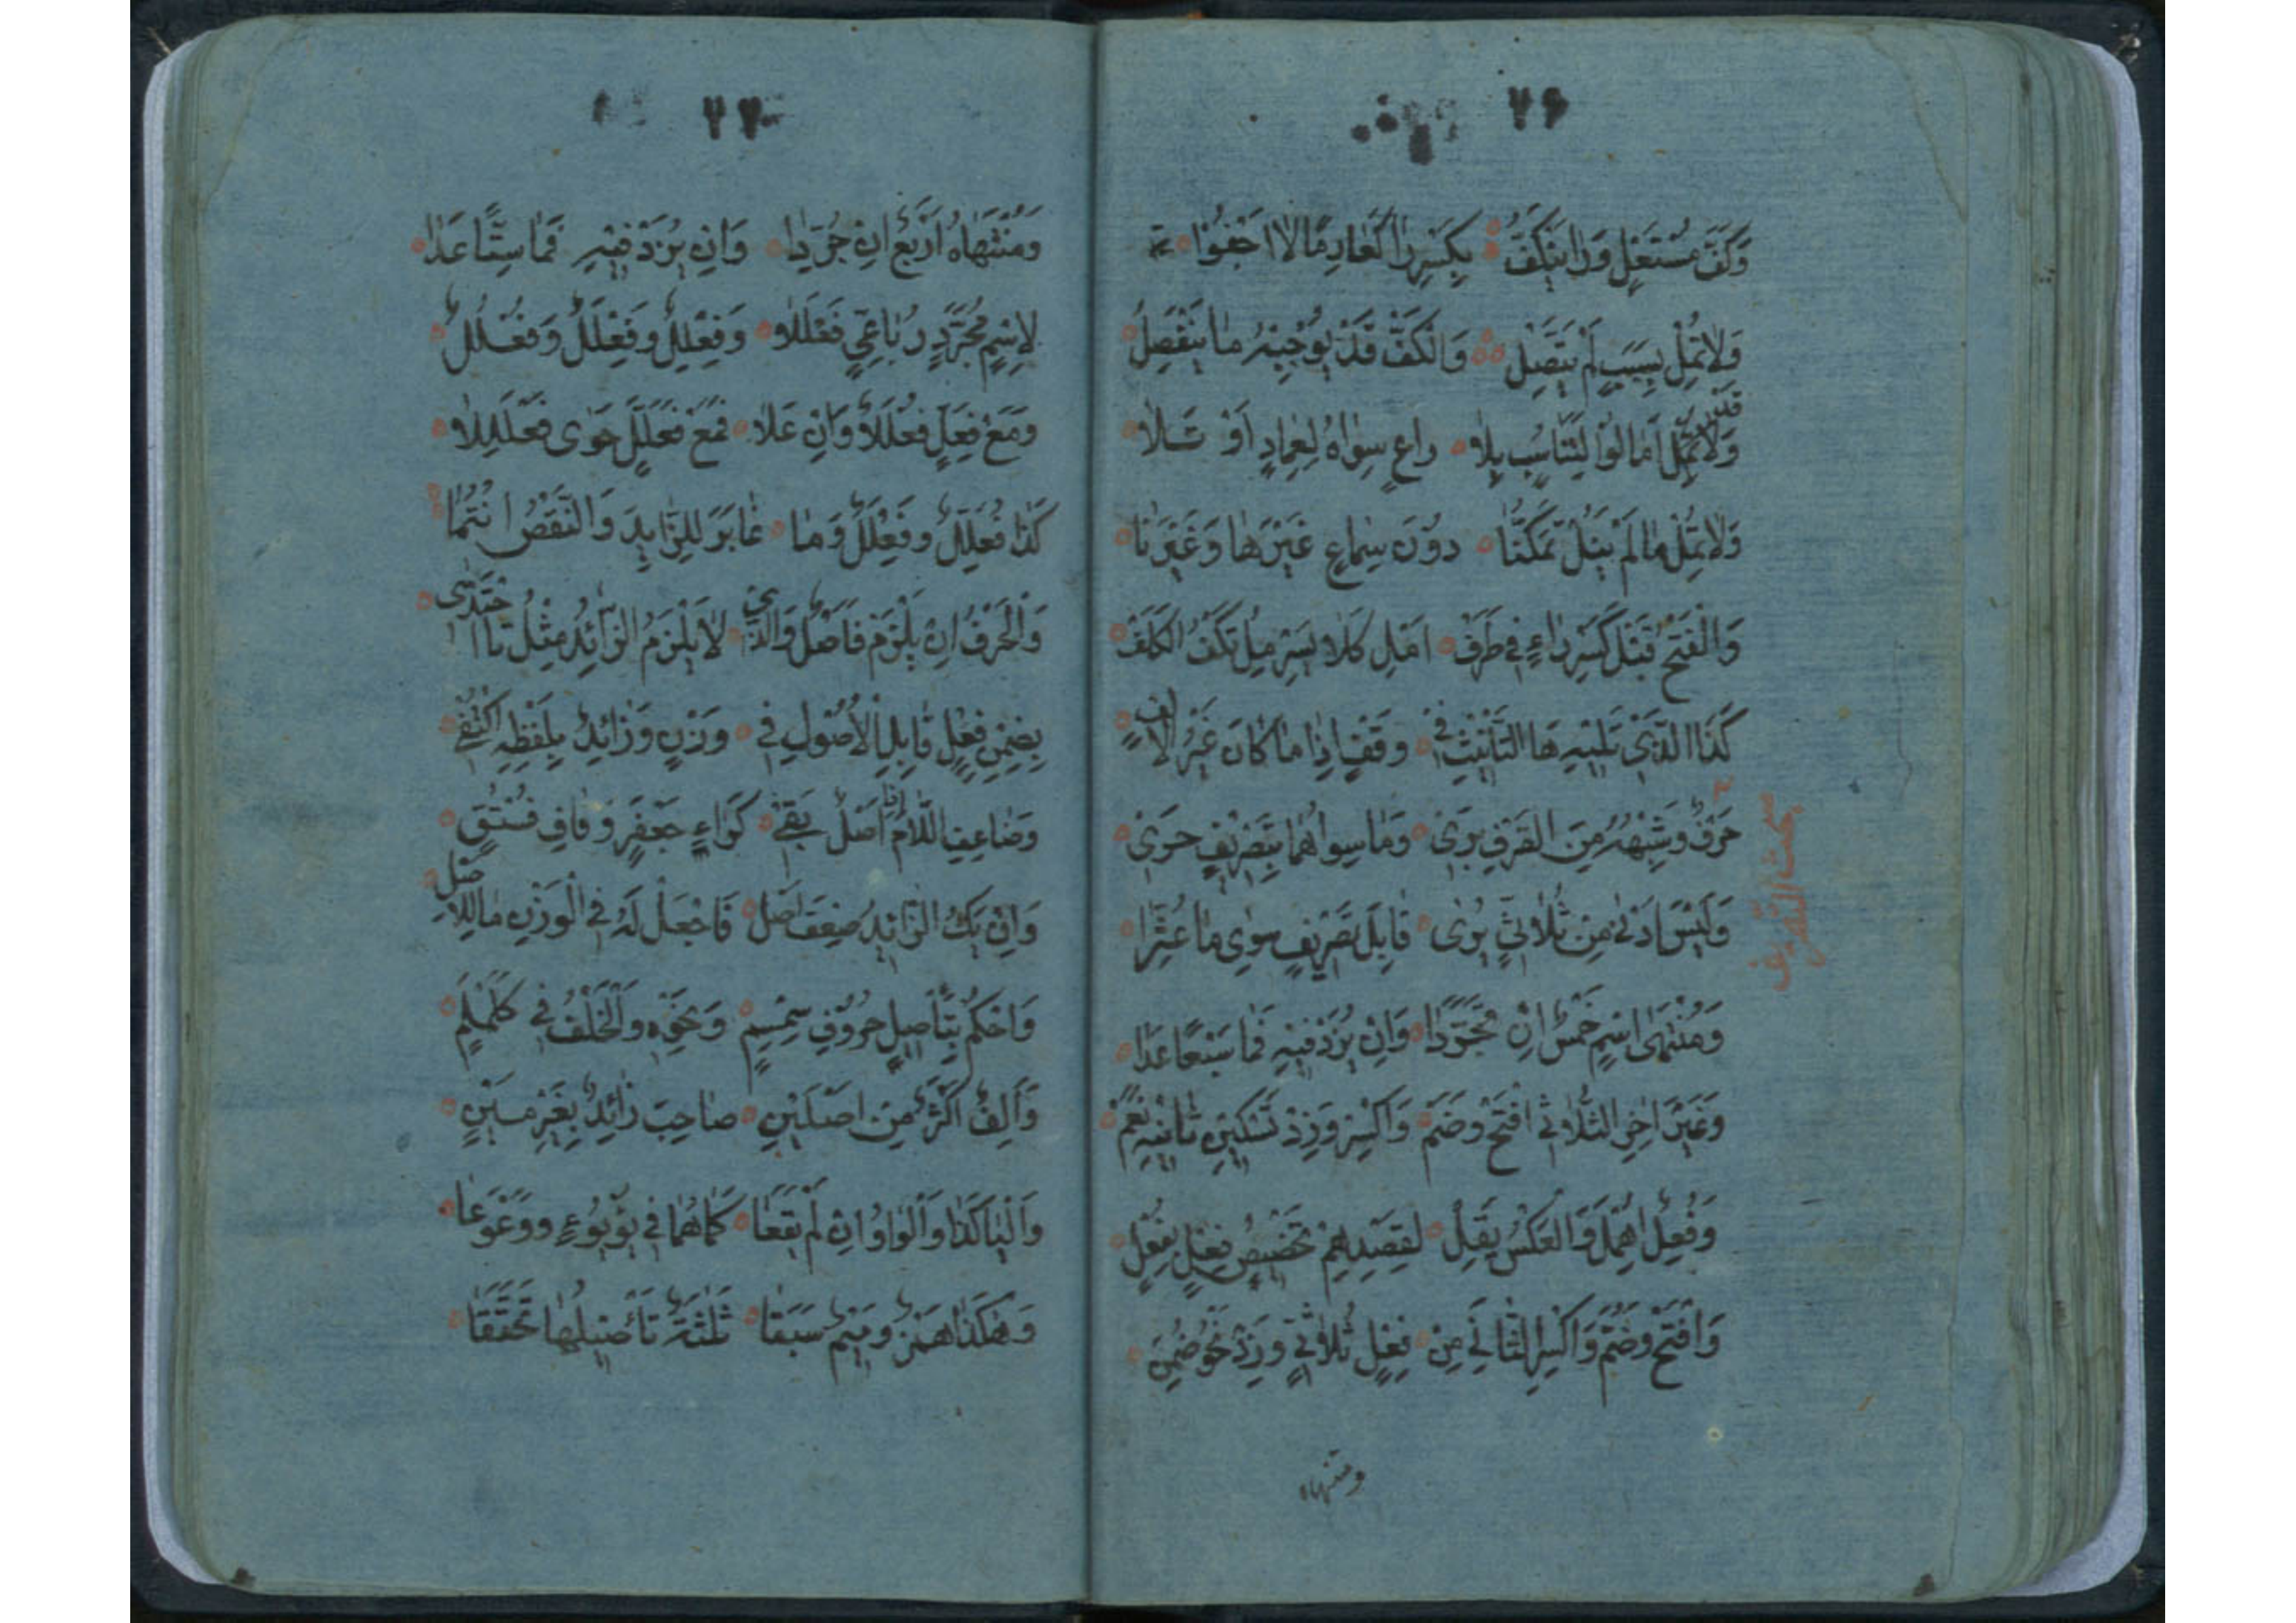 ٧۶
وَكَفَّ مُسْتَعْلٍ وَرَا يَنْكَفُّ بِكَسْرِ رَا كَغَارِمًا لَا اَجْفُوا
وَلَا تُمِلْ بِسَبَبٍ لَمْ يَتَّصِلْ وَالْكَفُّ قَدْ يُوجِبُهُ مَا يَنْفَصِلُ
وَقَدْ اَمَالُوا لِتَنَاسُبٍ بِلَا دَاعٍ سِوَاهُ كَعِمَادٍ اَوْ تَلَا
وَلَا تُمِلْ مَا لَمْ يَنَلْ تَمَكُّنًا دُونَ سِمَاعٍ غَيْرَهَا وَغَيْرَنَا
وَالْفَتْحَ قَبْلَ كَسْرِ رَاءٍ فِي طَرَفْ اَمِلْ كَلَاَيْسَرِ مِلْ تَكْفَ الْكَلَفْ
كَذَا الَّذِي تَلِيهِ هَا التَّأْنِيثِ فِي وَقْفٍ اِذَا مَا كَانَ غَيْرَ اَلِفٍ
مبحث التصريف
حَرْفٌ وَشِبْهُهُ مِنَ الصَّرْفِ بَرِي وَمَا سِوَاهُمَا بِتَصْرِيفٍ حَرِي
وَلَيْسَ اَدْنَى مِنْ ثُلَاثِيٍّ يُرَى قَابِلَ تَصْرِيفٍ سِوَى مَا غُيِّرَا
وَمُنْتَهَى اسْمٍ خَمْسٌ اِنْ تَجَرَّدَا وَاِنْ يُزَدْ فِيهِ فَمَا سَبْعًا عَدَا
وَغَيْرَ اٰخِرِ الثُّلَاثِي افْتَحْ وَضُمَّ وَاكْسِرْ وَزِدْ تَسْكِينَ ثَانِيهِ تَعُمْ
وَفِعُلٌ اُهْمِلَ وَالْعَكْسُ يَقِلْ لِقَصْدِهِمْ تَخْصِيصَ فِعْلٍ بِفُعِلٍ
وَافْتَحْ وَضُمَّ وَاكْسِرِ الثَّانِيَ مِنْ فِعْلٍ ثُلَاثِيٍّ وَزِدْ نَحْوَ ضُمِنَ
ومنتهاه
٧٧
وَمُنْتَهَاهُ اَرْبَعٌ اِنْ جُرِّدَا وَاِنْ يُزَدْ فِيهِ فَمَا سِتًّا عَدَا
لِاسْمٍ مُجَرَّدٍ رُبَاعِيٍّ فَعْلَلٌ وَفِعْلِلٌ وَفِعْلَلٌ وَفُعْلُلٌ
وَمَعْ فِعَلٍّ فُعْلَلٌ وَاِنْ عَلَا فَمَعْ فَعَلَّلٍ حَوَى فَعْلَلِلَا
كَذَا فُعَلِّلٌ وَفِعْلَلٌّ وَمَا غَايَرَ لِلزَّايِدِ وَالنَّقْصُ انْتُمَا
وَالْحَرْفُ اِنْ يَلْزَمْ فَاَصْلٌ وَالَّذِي لَا يَلْزَمُ الزَّائِدُ مِثْلُ تَا احْتُذِي
بِضِمْنِ فِعْلٍ قَابِلِ الْاُصُولَ فِي وَزْنٍ وَزَائِدٌ بِلَفْظِهِ اكْتُفِي
وَضَاعِفِ اللَّامَ اِذَا اَصْلٌ بَقِي كَرَاءِ جَعْفَرٍ وَقَافِ فُسْتُقٍ
وَاِنْ يَكُ الزَّائِدُ ضِعْفَ اَصْلٍ فَاجْعَلْ لَهُ فِي الْوَزْنِ مَا لِلْاَصْلِ
وَاحْكُمْ بِتَأْصِيلِ حُرُوفِ سِمْسِمٍ وَنَحْوِهِ وَالْخُلْفُ فِي كَلَمْلَمٍ
وَاَلِفٌ اَكْثَرَ مِنْ اَصْلَيْنِ صَاحَبَ زَائِدٌ بِغَيْرِ مَيْنٍ
وَالْيَا كَذَا وَالْوَاوُ اِنْ لَمْ يَقَعَا كَمَا هُمَا فِي يُؤْيُؤٍ وَوَعْوَعَا
وَهٰكَذَا هَمْزٌ وَمِيمٌ سَبَقَا ثَلٰثَةً تَأْصِيلُهَا تَحَقَّقَا